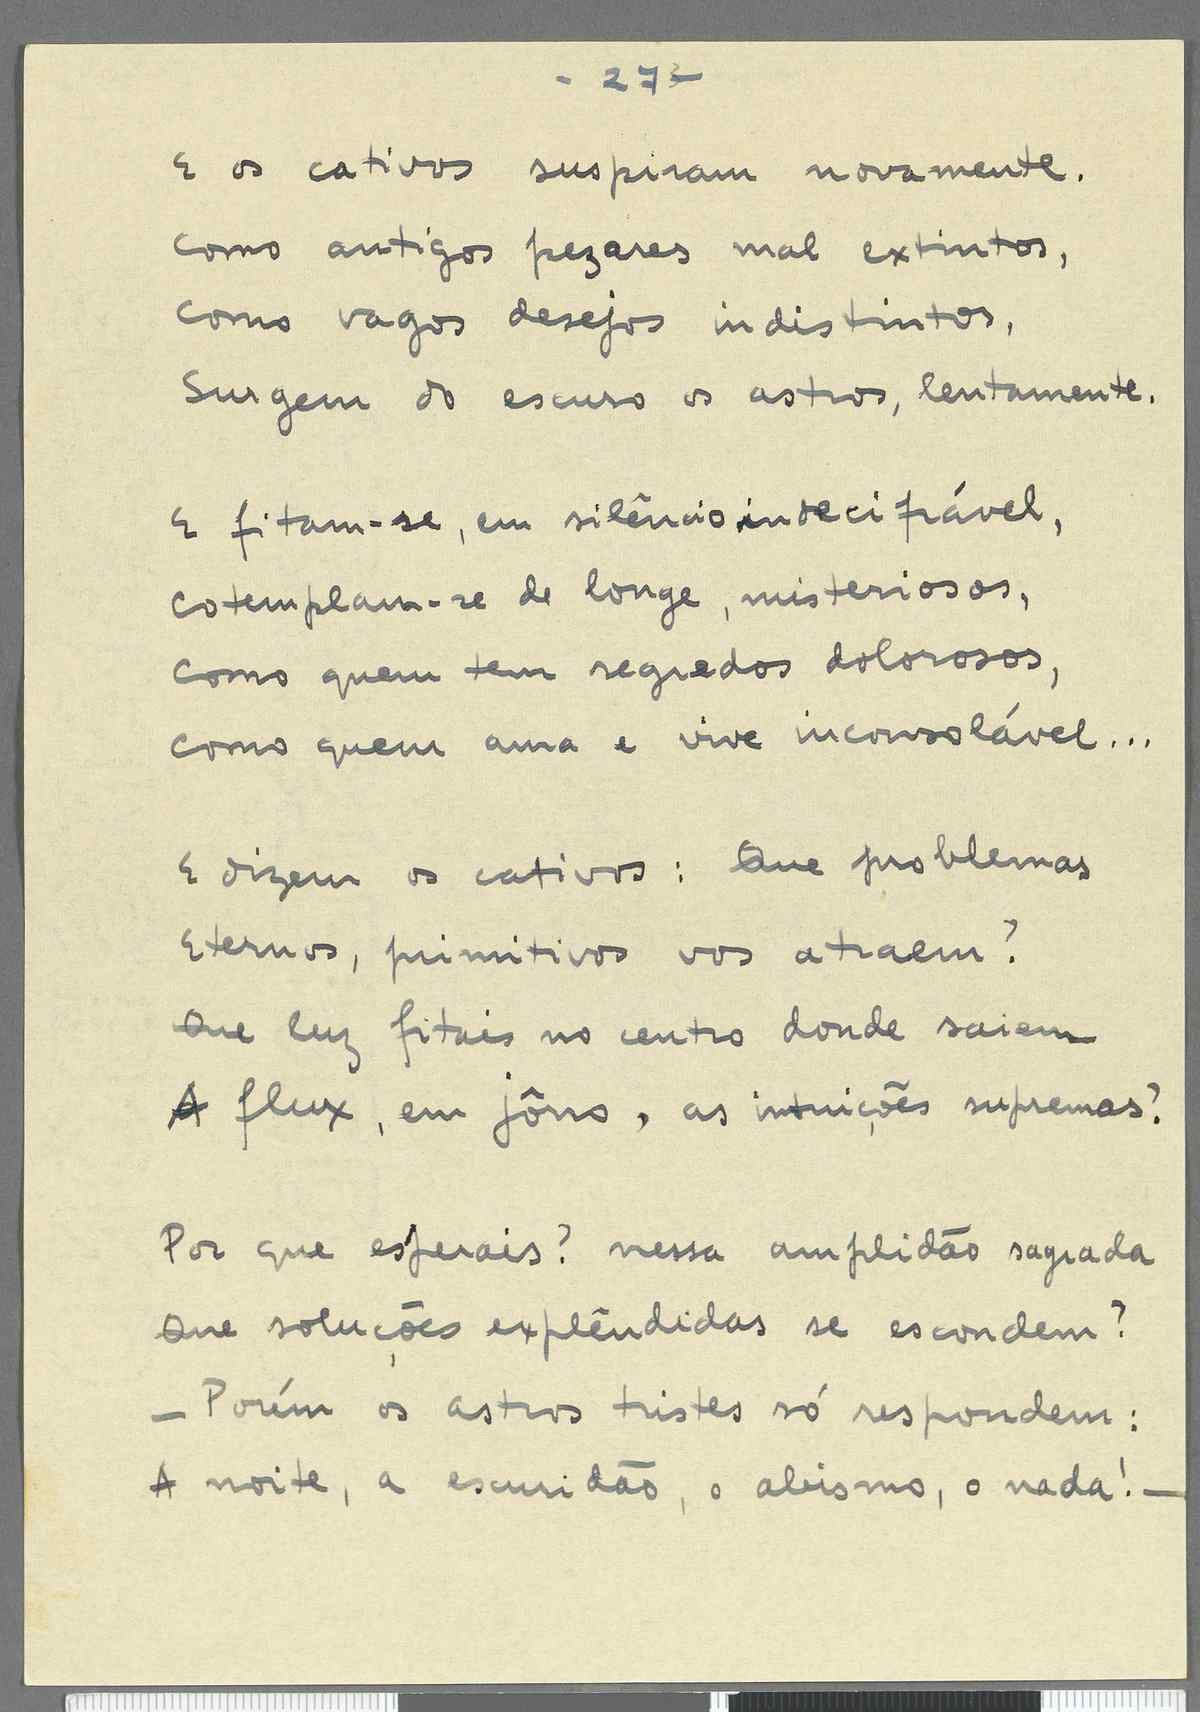 - 27 -
E os cativos suspiram novamente.
Como antigos pezares mal extintos,
Como vagos desejos indistintos,
Surgem do escuro os astros, lentamente.
E fitam-se, em silêncio indecifrável,
Cotemplam-se de longe, misteriosos,
Como quem tem segredos dolorosos,
Como quem ama e vive inconsolável...
E dizem os cativos: Que problemas
Eternos, primitivos vos atraem?
Que luz fitais no centro donde saiem
A flux, em jôrro, as intuições supremas?
Por que esperais? nessa amplidão sagrada
Que soluções explêndidas se escondem?
- Porém os astros tristes só respondem:
A noite, a escuridão, o abismo, o nada! -